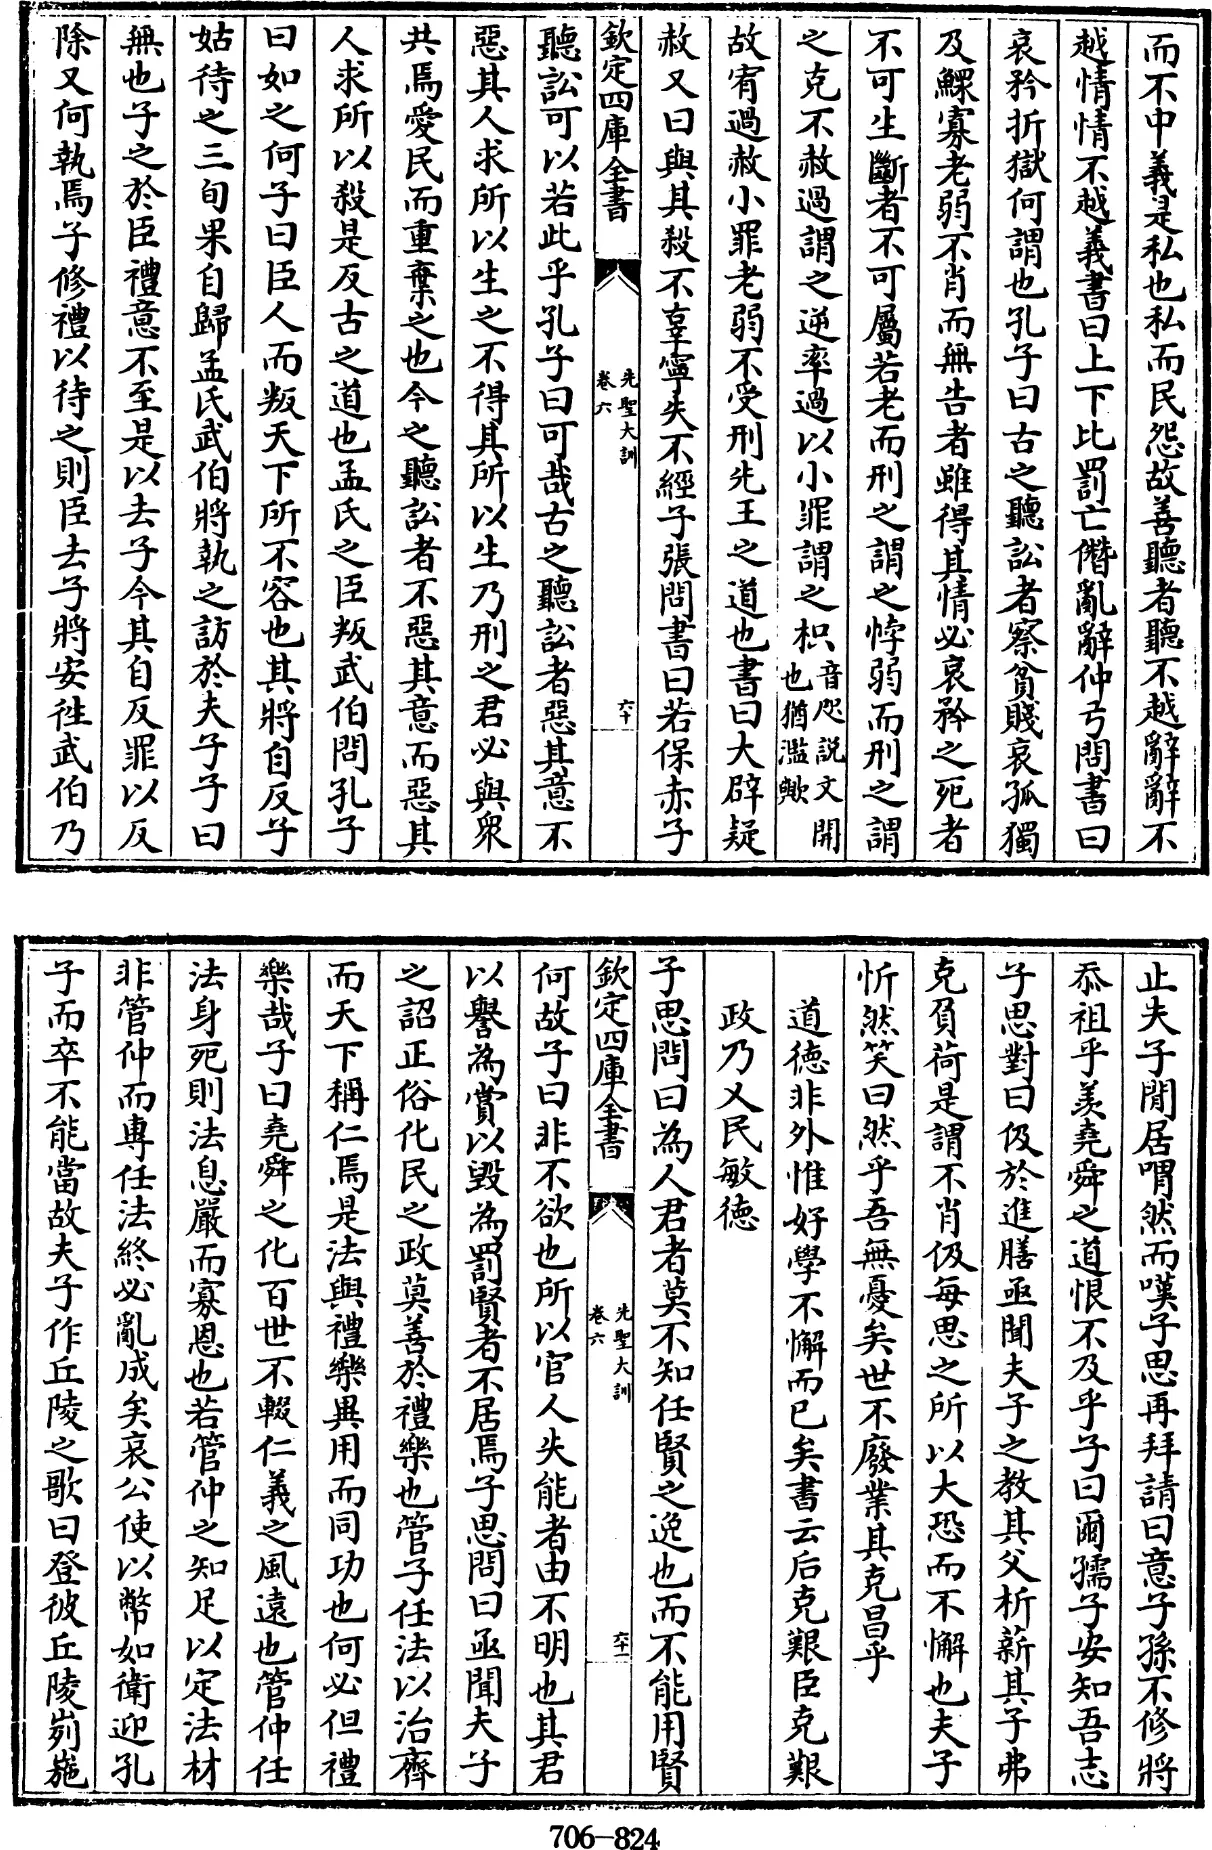 而不中義是私也私而民怨故善聽者聽不越辭辭不
越情情不越義書曰上下比罰亡僭亂辭仲弓問書曰
哀矜折獄何謂也孔子曰古之聽訟者察貧賤哀孤獨
及鰥寡老弱不肖而無告者雖得其情必哀矜之死者
不可生斷者不可屬若老而刑之謂之悖弱而刑之謂
之克不赦過謂之逆率過以小罪謂之枳音咫說文開也猶濫歟
故宥過赦小罪老弱不受刑先王之道也書曰大辟疑
赦又曰與其殺不辜寧失不經子張問書曰若保赤子
欽定四庫全書 先聖大訓 卷六 六十
聽訟可以若此乎孔子曰可哉古之聽訟者惡其意不
惡其人求所以生之不得其所以生乃刑之君必與衆
共焉愛民而重棄之也今之聽訟者不惡其意而惡其
人求所以殺是反古之道也孟氏之臣叛武伯問孔子
曰如之何子曰臣人而叛天下所不容也其將自反子
姑待之三旬果自歸孟氏武伯將執之訪於夫子子曰
無也子之於臣禮意不至是以去子今其自反罪以反
除又何執焉子修禮以待之則臣去子將安往武伯乃
止夫子閒居喟然而嘆子思再拜請曰意子孫不修將
忝祖乎羨堯舜之道恨不及乎子曰爾孺子安知吾志
子思對曰伋於進膳亟聞夫子之教其父析薪其子弗
克負荷是謂不肖伋每思之所以大恐而不懈也夫子
忻然笑曰然乎吾無憂矣世不廢業其克昌乎
道德非外惟好學不懈而已矣書云后克艱臣克艱
政乃乂民敏德
子思問曰為人君者莫不知任賢之逸也而不能用賢
欽定四庫全書 先聖大訓 卷六 六十一
何故子曰非不欲也所以官人失能者由不明也其君
以譽為賞以毀為罰賢者不居焉子思問曰亟聞夫子
之詔正俗化民之政莫善於禮樂也管子任法以治齊
而天下稱仁焉是法與禮樂異用而同功也何必但禮
樂哉子曰堯舜之化百世不輟仁義之風遠也管仲任
法身死則法息嚴而寡恩也若管仲之知足以定法材
非管仲而專任法終必亂成矣哀公使以幣如衛迎孔
子而卒不能當故夫子作丘陵之歌曰登彼丘陵峛崺
706-824